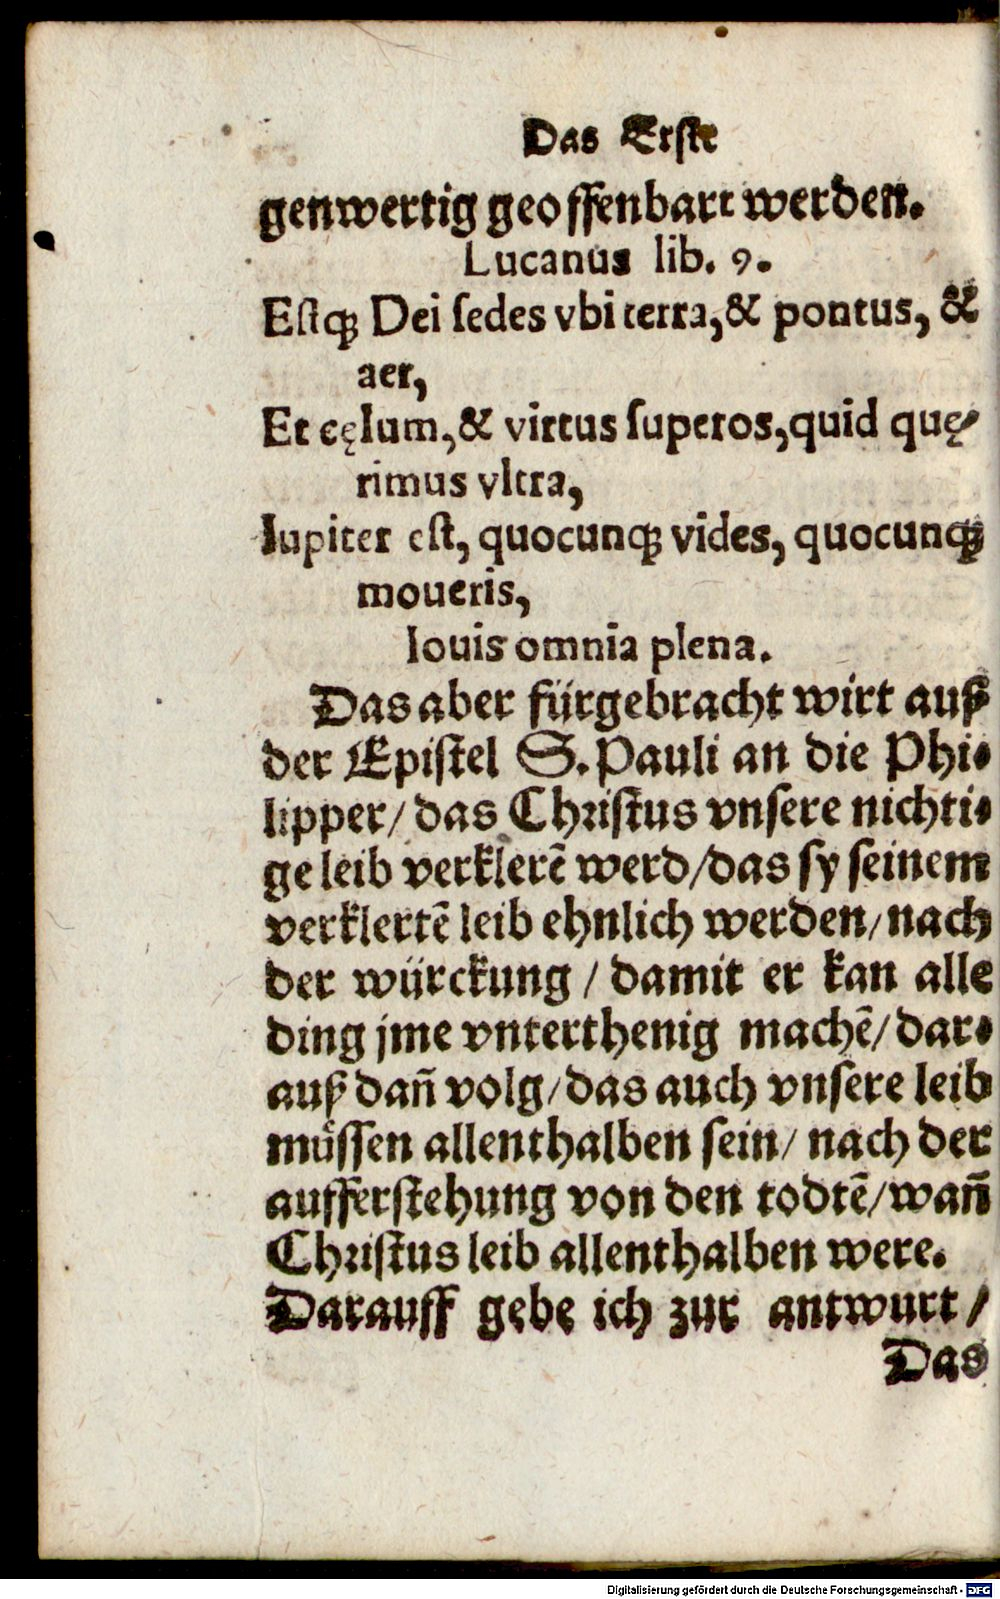 Das Erste
genwertig geoffenbart werden.
Lucanus lib. 9.
Estqꝫ Dei sedes vbi terra, & pontus, &
aer,
Et cęlum, & virtus superos, quid quę-
rimus vltra,
Iupiter est, quocunqꝫ vides, quocunqꝫ
moueris,
Iouis omnia plena.
Das aber fürgebracht wirt auß
der Epistel S. Pauli an die Phi-
lipper/ das Christus vnsere nichti-
ge leib verklerẽ werd/das sy seinem
verklertẽ leib ehnlich werden/nach
der würckung / damit er kan alle
ding jme vnterthenig machẽ/ dar-
auß dañ volg/das auch vnsere leib
müssen allenthalben sein/ nach der
aufferstehung von den todtẽ/wañ
Christus leib allenthalben were.
Darauff gebe ich zur antwurt/
Das
Digitalisierung gefördert durch die Deutsche Forschungsgemeinschaft - DFG